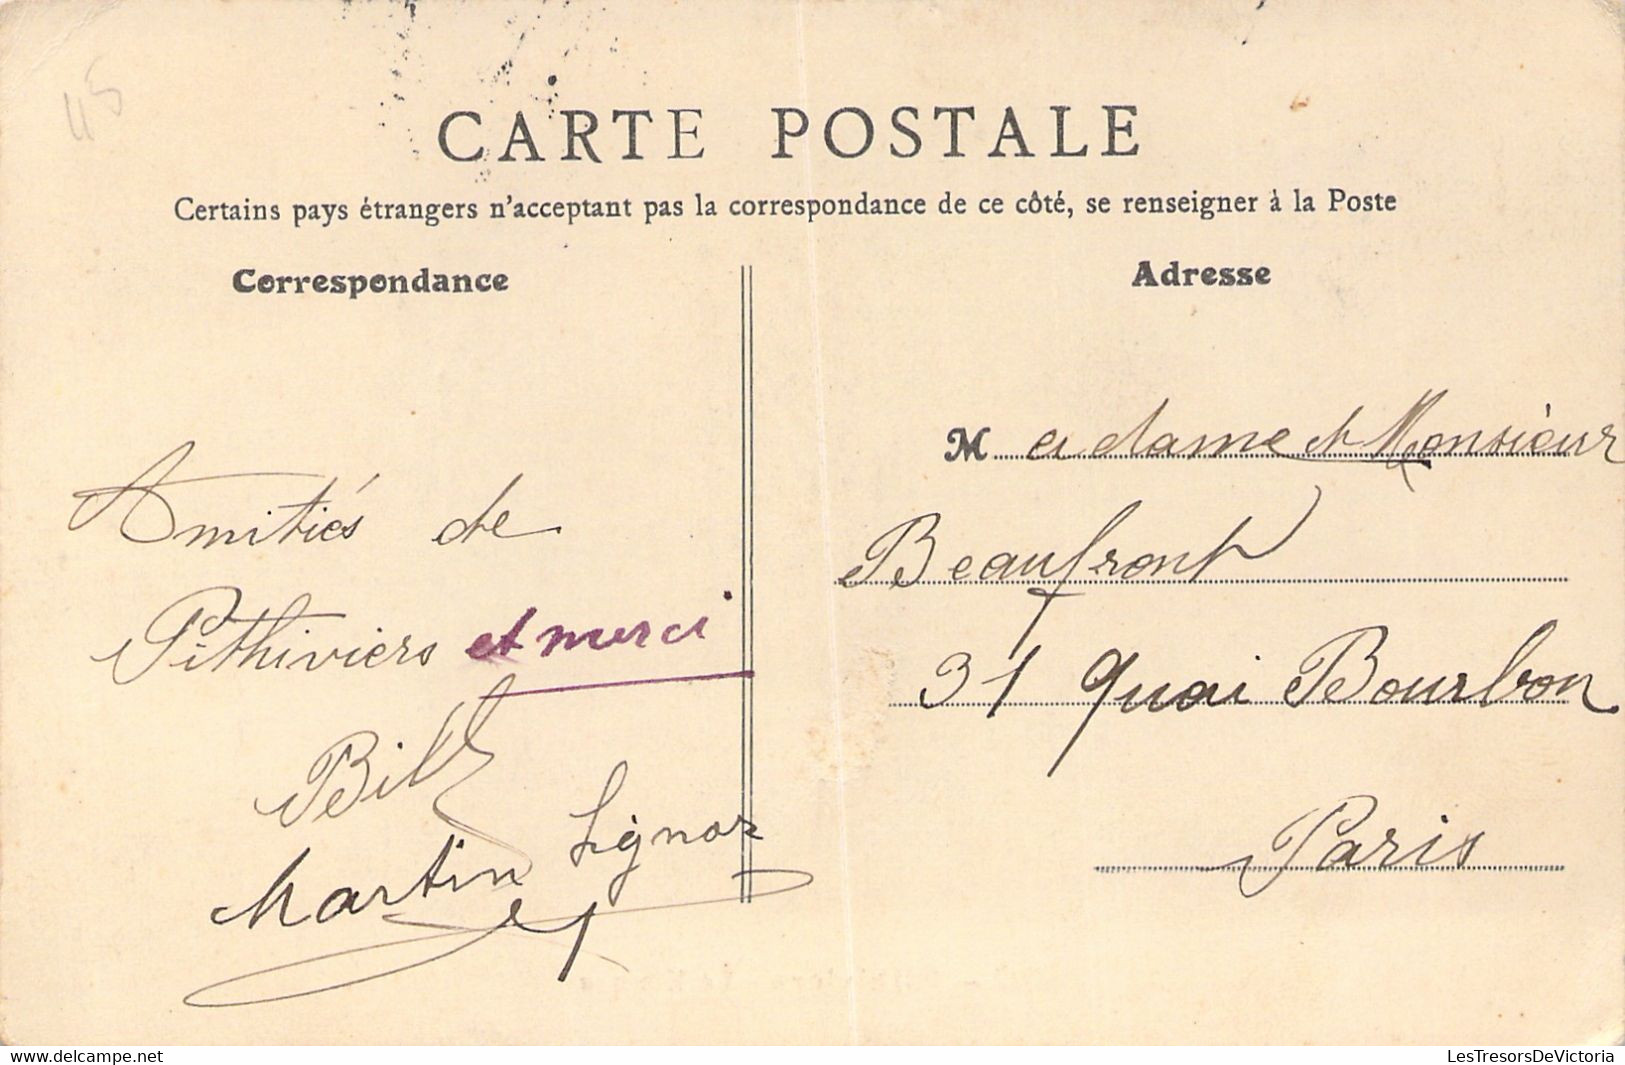 45
CARTE POSTALE
Certains pays étrangers n'acceptant pas la correspondance de ce côté, se renseigner à la Poste
Correspondance
Amitiés de
Pithiviers et merci
Bill
Martin
Adresse
Madame et Monsieur
Beaufront
31 Quai Bourbon
Paris
www.delcampe.net
LesTresorsDeVictoria